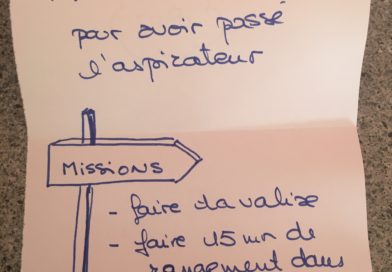 pour avoir passé
l'aspirateur
MISSIONS
- faire la valise
- faire 15 mn de
rangement dans